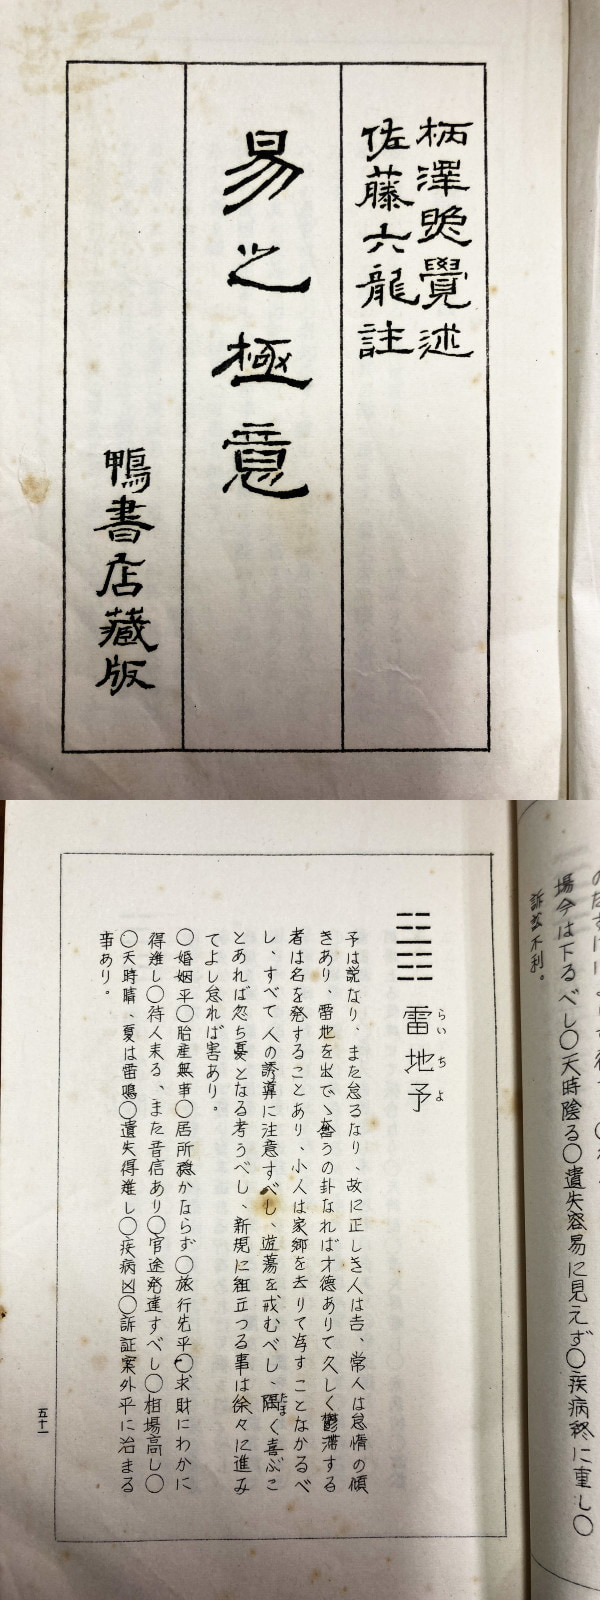 柄澤晩覺述
佐藤六龍註
易之極意
鴨書店藏版
雷地予
らいちよ
予は説なり、また怠るなり、故に正しき人は吉、常人は怠惰の傾
きあり、雷地を出でゝ奮うの卦なれば才徳ありて久しく鬱滞する
者は名を発することあり、小人は家郷を去りて帰すことなかるべ
し、すべて人の誘導に注意すべし、遊蕩を戒むべし、隅く喜ぶこ
たま
とあれば忽ち憂となる考うべし、新規に組立つる事は徐々に進み
てよし怠れば害あり。
〇婚姻平〇胎産無事〇居所穏かならず〇旅行先平〇求財にわかに
得難し〇待人来る、また音信あり〇官途発達すべし〇相場高し〇
〇天時晴、夏は雷鳴〇遺失得難し〇疾病凶〇訴証案外平に治まる
事あり。
五十一
場今は下るべし〇天時陰る〇遺失容易に見えず〇疾病終に重し〇
訴訟不利。